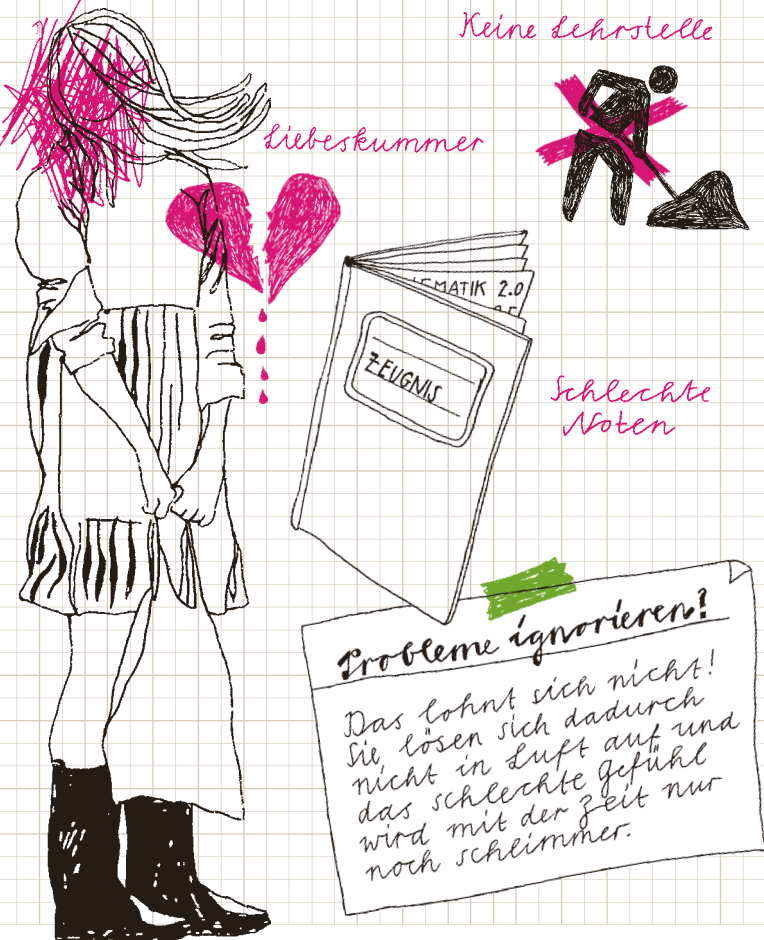 Keine Lehrstelle
Liebeskummer
EMATIK 2.0
ZEUGNIS
Schlechte
Noten
Probleme ignorieren?
Das lohnt sich nicht!
Sie lösen sich dadurch
nicht in Luft auf und
das schlechte gefühl
wird mit der Zeit nur
noch schlimmer.